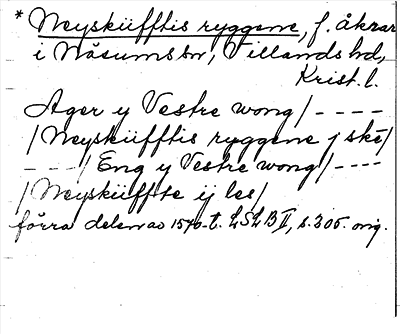 * Neyskiifftis ryggene, f. åkrar
i Näsums sn, Villands hd,
Krist. l.
Ager y Vestre wong/ - - - -
/Neyskiifftis ryggene j ske/
- - -/ Eng y Vestre wong/ - - - -
/Neyskiiffte ij les/
förra delen av 1570-t. LSLB II, s. 305. orig.